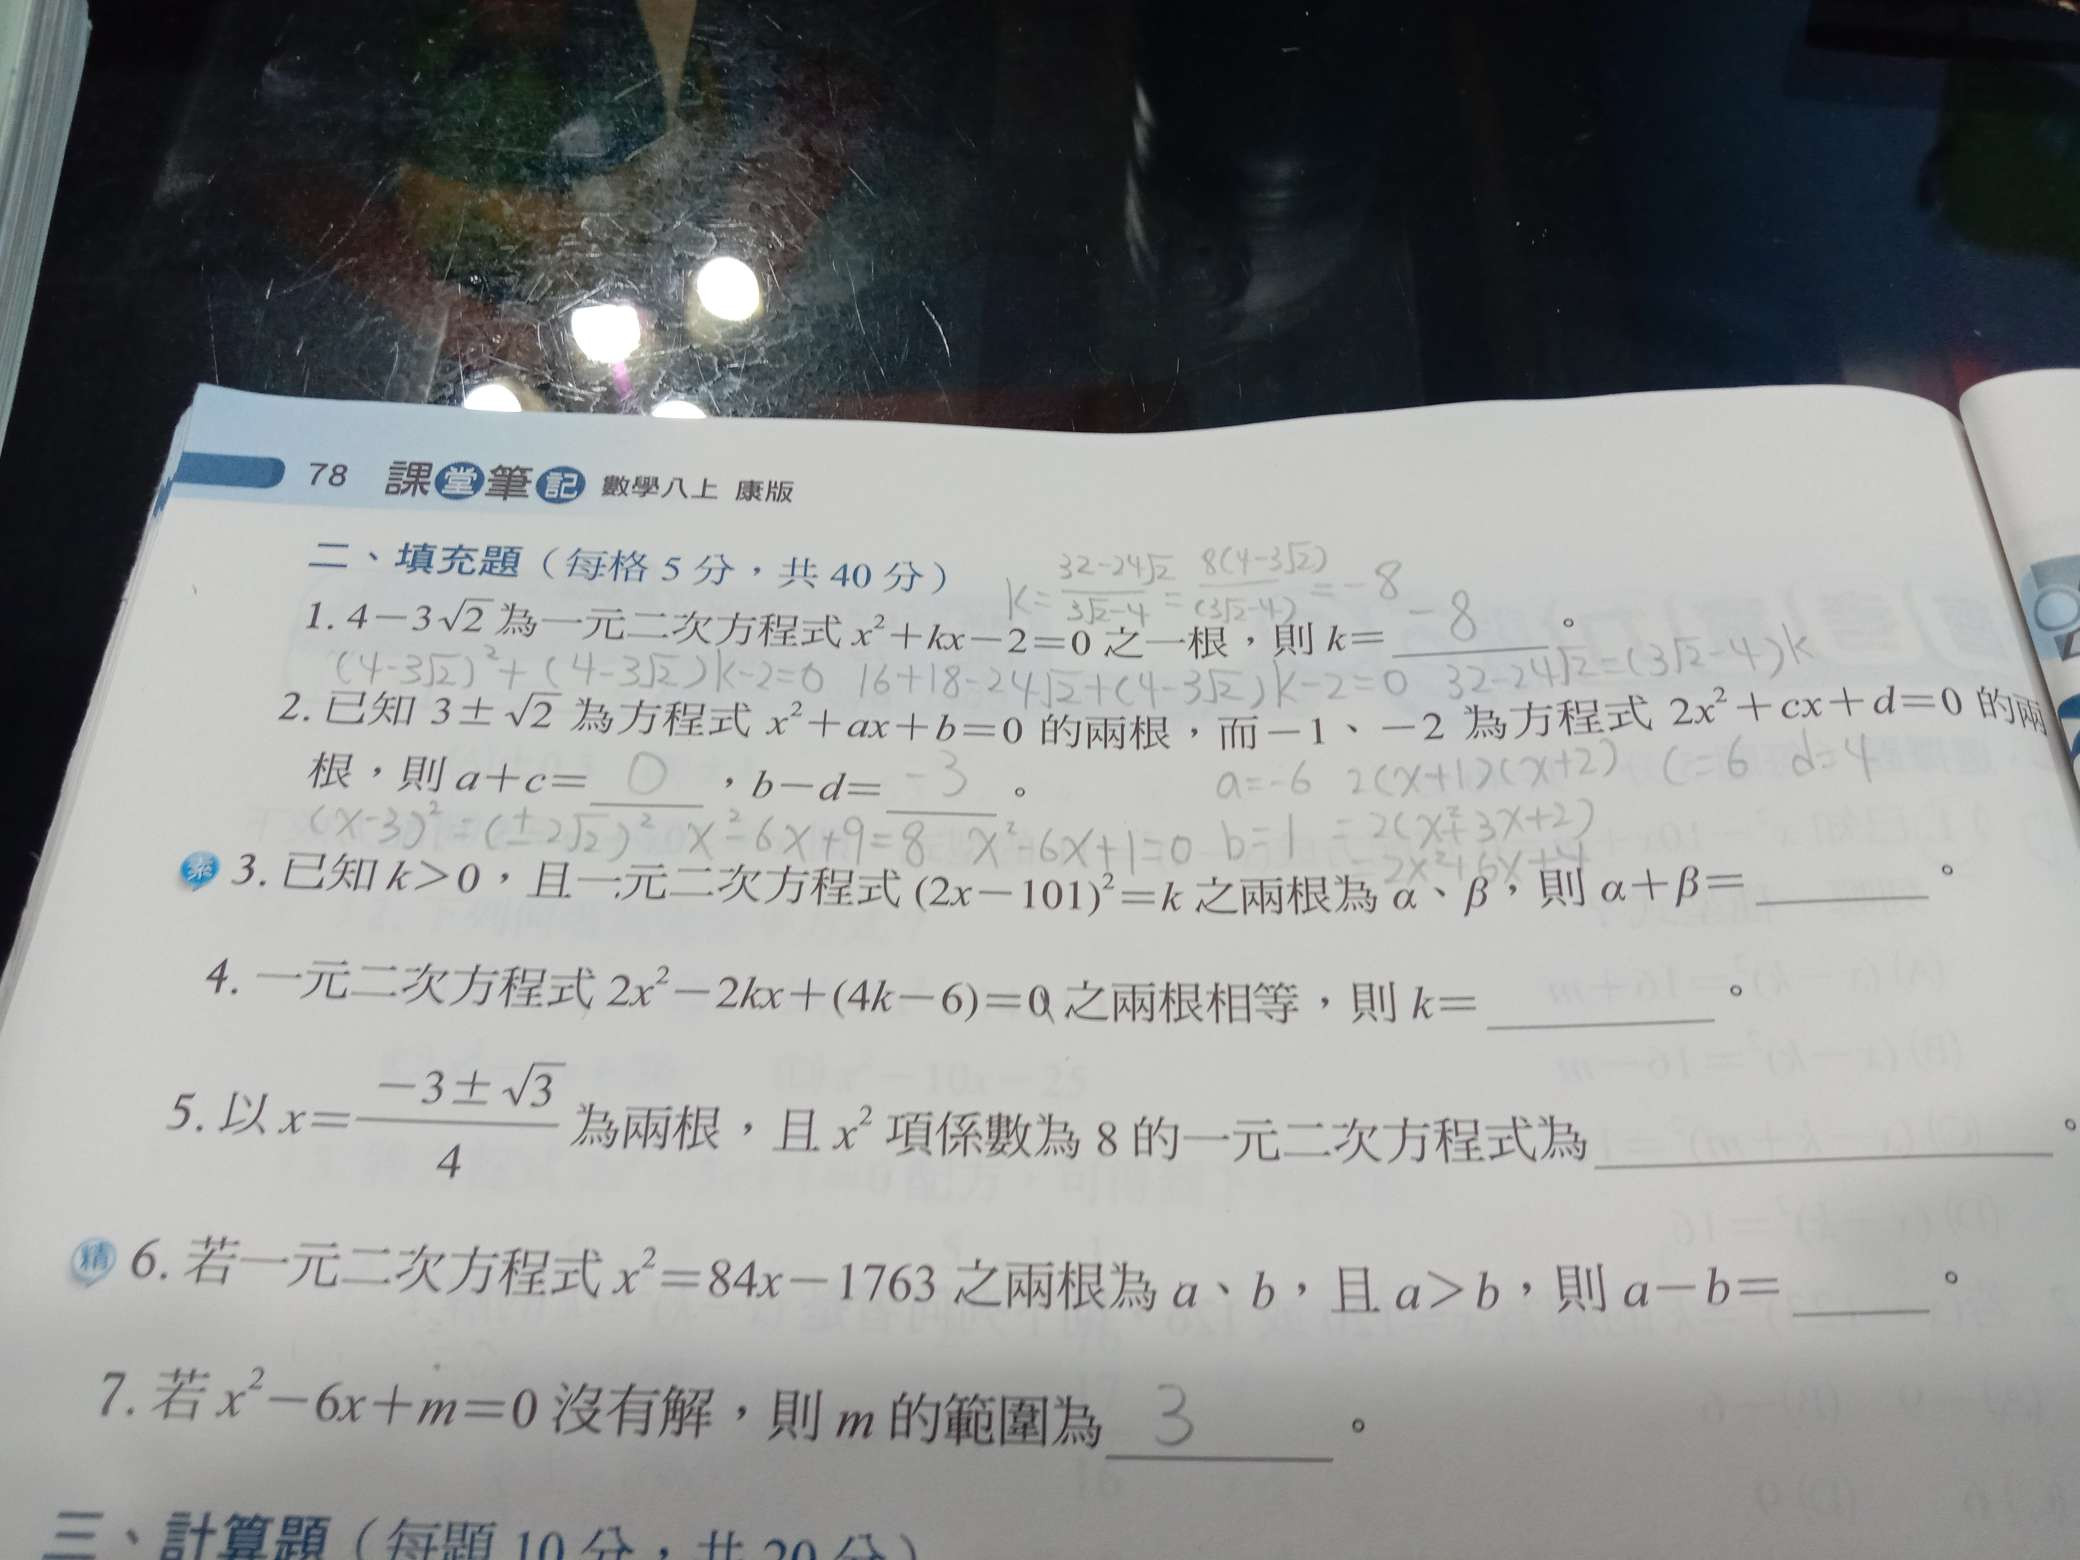 78 課堂筆記 數學八上 康版
二、填充題（每格 5 分，共 40 分）
k=\frac{32-24√2}{3√2-4}=\frac{8(4-3√2)}{(3√2-4)}=-8
1. 4－3√2 為一元二次方程式 x²＋kx－2＝0 之一根，則 k＝ -8 。
(4-3√2)²+(4-3√2)k-2=0 16+18-24√2+(4-3√2)k-2=0 32-24√2=(3√2-4)k
2. 已知 3±√2 為方程式 x²＋ax＋b＝0 的兩根，而－1、－2 為方程式 2x²＋cx＋d＝0 的兩
根，則 a＋c＝ 0 ，b－d＝ -3 。 a=-6 2(x+1)(x+2) c=6 d=4
(x-3)²=(±2√2)² x²-6x+9=8 x²-6x+1=0 b=1 =2(x²+3x+2)
=2x²+6x+4
素 3. 已知 k＞0，且一元二次方程式 (2x－101)²＝k 之兩根為 α、β，則 α＋β＝ 。
4. 一元二次方程式 2x²－2kx＋(4k－6)＝0 之兩根相等，則 k＝ 。
5. 以 x＝\frac{－3±√3}{4} 為兩根，且 x² 項係數為 8 的一元二次方程式為 。
精 6. 若一元二次方程式 x²＝84x－1763 之兩根為 a、b，且 a＞b，則 a－b＝ 。
7. 若 x²－6x＋m＝0 沒有解，則 m 的範圍為 3 。
三、計算題（每題 10 分，共 20 分）